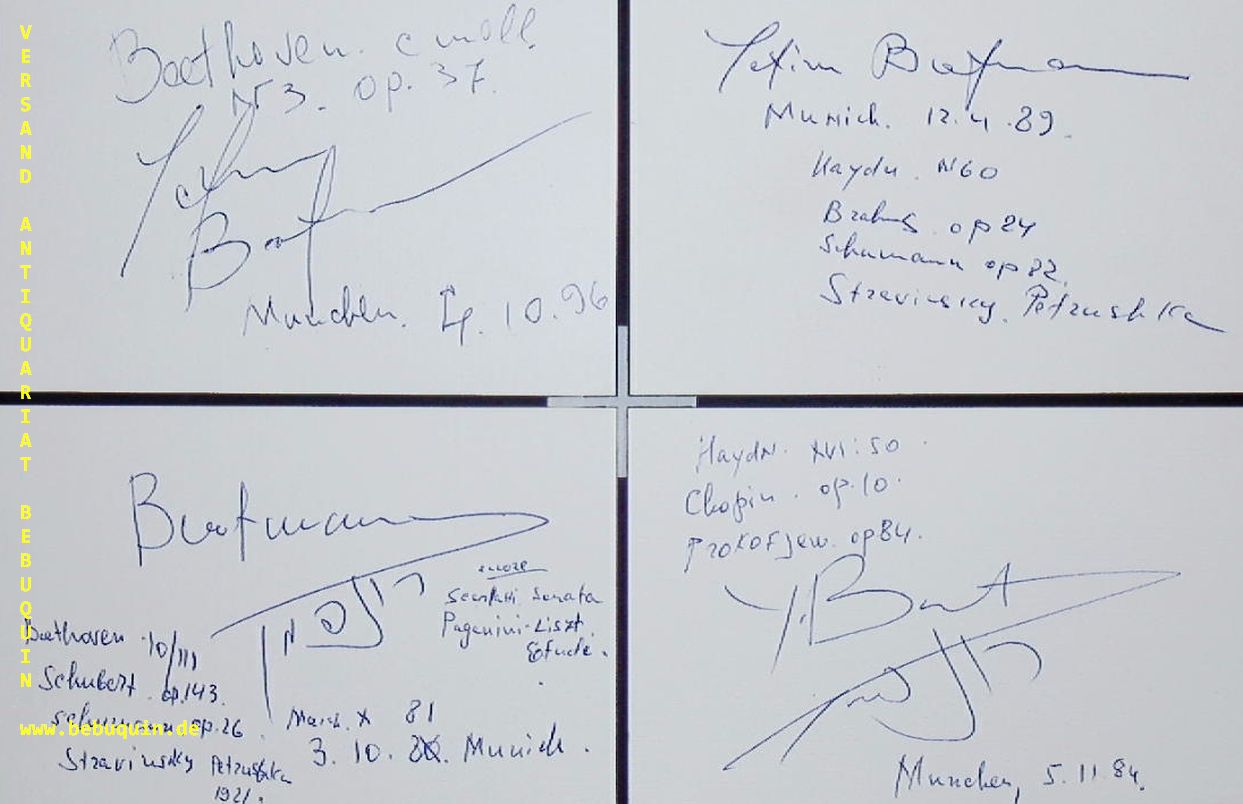 Beethoven. c moll.
N 3. op. 37.
Yefim
Bronfman
Munchen. 4. 10. 96
Yefim Bronfman
Munich. 12. 4. 89.
Haydn. N60
Brahms op 24
Schumann op 82.
Stravinsky. Petrushka
Bronfman
encore
Scarlatti Sonata
Paganini-Liszt.
Etude.
Beethoven 10/III
Schubert. op.143.
Schumann op.26
Stravinsky Petrushka
1921.
81
3. 10. Munich.
Haydn. XVI: 50
Chopin. op. 10.
Prokofjew. op 84.
Y. Bronf
Munchen, 5. 11. 84.
VERSAND ANTIQUARIAT BEBUQUIN
www.bebuquin.de